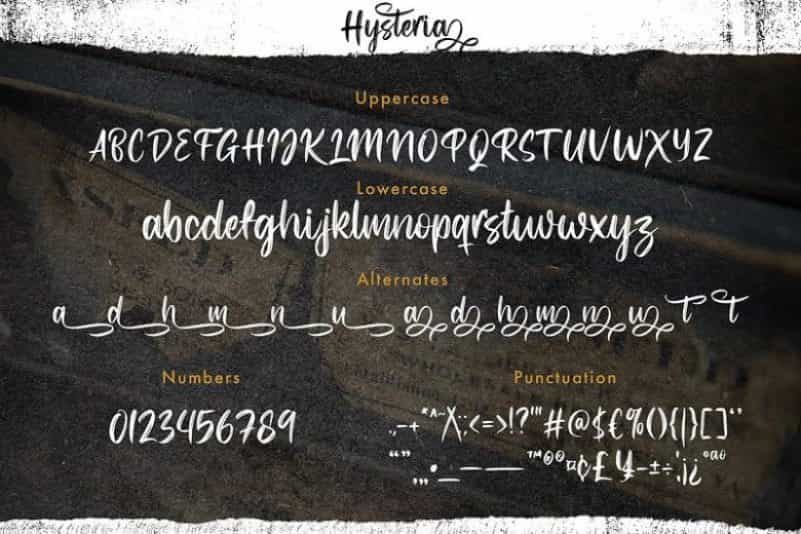 Hysteria
Uppercase
ABCDEFGHIJKLMNOPQRSTUVWXYZ
Lowercase
abcdefghijklmnopqrstuvwxyz
Alternates
a d h m n u a d h m n u T T
Numbers
0123456789
Punctuation
.,-+"^~/\:;<=>!?'"#@$€%(){|}[]‘’
“”‚„•_–—™®©¤¢£¥-±÷¦¡¿ºªº